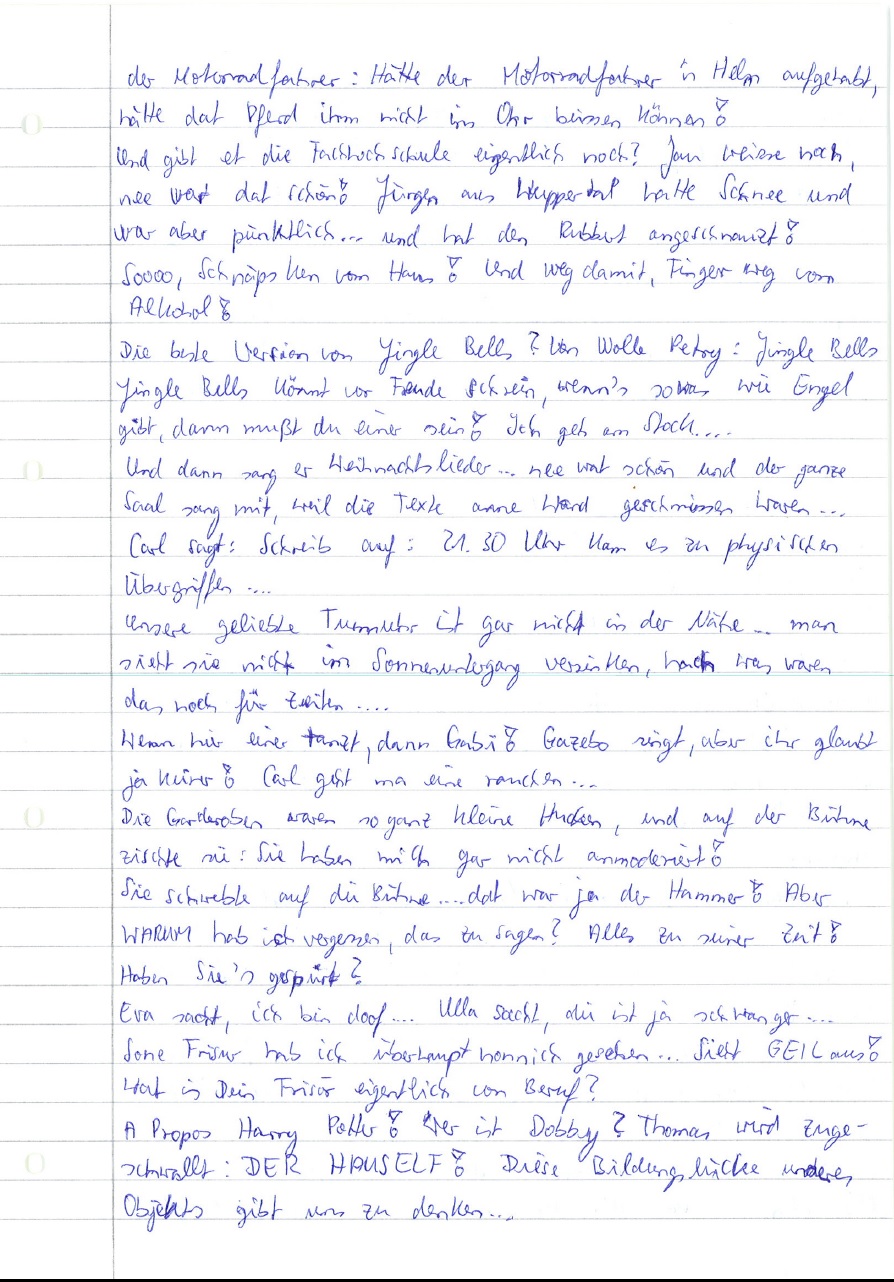 der Motorradfahrer: Hätte der Motorradfahrer 'n Helm aufgehabt,
hätte dat Pferd ihm nicht ins Ohr beissen können!
Und gibt et die Fachhochschule eigentlich noch? Jau weisse noch,
nee wat dat schön! Jürgen aus Wuppertal hatte Schnee und
war aber pünktlich... und hat den angeschnauzt!
Soooo, Schnäpsken vom Haus! Und weg damit, Finger weg vom
Alkohol!
Die beste Version von Jingle Bells? Von Wolle Petry: Jingle Bells
Jingle Bells könnt vor Freude schrein, wenn's sowas wie Engel
gibt, dann mußt du einer sein! Ich geh am Stock....
Und dann sang er Weihnachtslieder... nee wat schön und der ganze
Saal sang mit, weil die Texte anne Wand geschmissen waren...
Carl sagt: Schreib auf: 21.30 Uhr kam es zu physischen
Übergriffen....
Unsere geliebte Turmuhr ist gar nicht in der Nähe... man
sieht sie nicht im Sonnenuntergang versinken, hach was waren
das noch für Zeiten....
Wenn hier einer tanzt, dann Gabi! Gazebo singt, aber ihr glaubt
ja keiner! Carl geht ma eine rauchen...
Die Garderoben waren so ganz kleine Hucken, und auf der Bühne
zischte sie: Sie haben mich gar nicht anmoderiert!
Sie schwebte auf die Bühne....dat war ja der Hammer! Aber
WARUM hab ich vergessen, das zu sagen? Alles zu seiner Zeit!
Haben Sie's gespürt?
Eva sacht, ich bin doof.... Ulla sacht, die ist ja schwanger....
Sone Frisur hab ich überhaupt nonnich gesehen... Sieht GEIL aus!
Wat is Dein Frisör eigentlich von Beruf?
A Propos Harry Potter! Wer ist Dobby? Thomas wird zuge-
schwallt: DER HAUSELF! Diese Bildungslücke unseres
Objekts gibt uns zu denken...